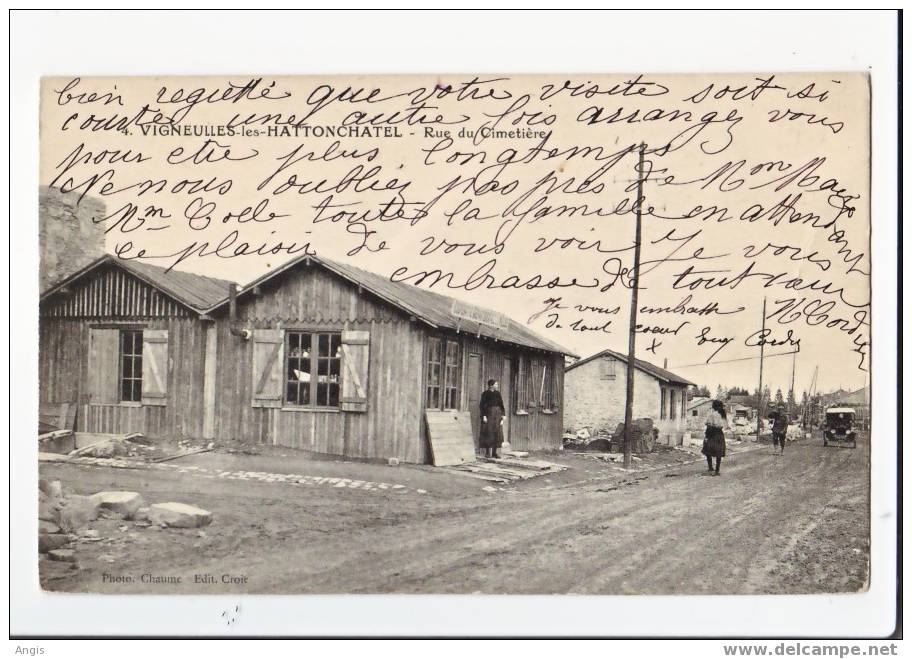 bien regretté que votre visite soit si
courte une autre fois arrangez vous
4. VIGNEULLES-les-HATTONCHATEL - Rue du Cimetière
pour etre plus longtemps
Ne nous oubliez pas pres de Mm
Mm Colle toute la famille en attendant
le plaisir de vous voir Je vous
embrasse de tout cœur
Je vous embrasse
de tout coeur
Photo. Chaume Edit. Croie
Angis
www.delcampe.net